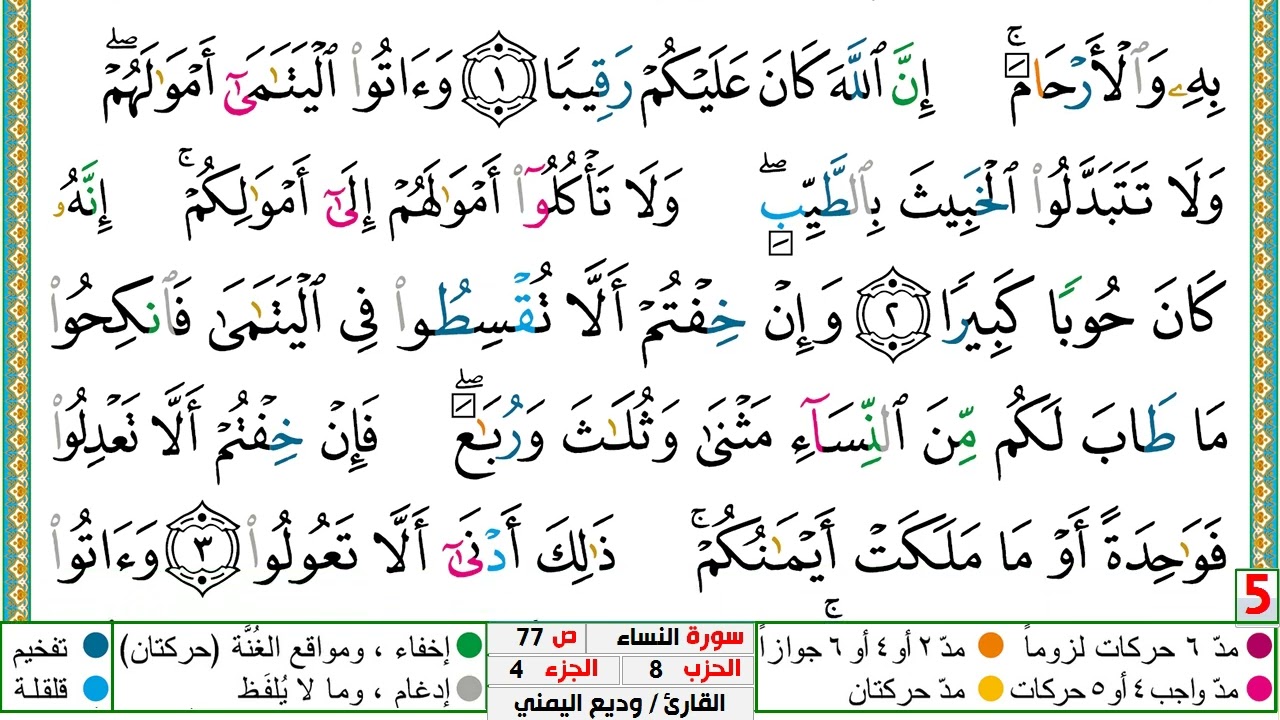 بِهِۦ وَٱلۡأَرۡحَامَۚ إِنَّ ٱللَّهَ كَانَ عَلَيۡكُمۡ رَقِيبٗا ١ وَءَاتُواْ ٱلۡيَتَٰمَىٰٓ أَمۡوَٰلَهُمۡۖ
وَلَا تَتَبَدَّلُواْ ٱلۡخَبِيثَ بِٱلطَّيِّبِۖ وَلَا تَأۡكُلُوٓاْ أَمۡوَٰلَهُمۡ إِلَىٰٓ أَمۡوَٰلِكُمۡۚ إِنَّهُۥ
كَانَ حُوبٗا كَبِيرٗا ٢ وَإِنۡ خِفۡتُمۡ أَلَّا تُقۡسِطُواْ فِي ٱلۡيَتَٰمَىٰ فَٱنكِحُواْ
مَا طَابَ لَكُم مِّنَ ٱلنِّسَآءِ مَثۡنَىٰ وَثُلَٰثَ وَرُبَٰعَۖ فَإِنۡ خِفۡتُمۡ أَلَّا تَعۡدِلُواْ
فَوَٰحِدَةً أَوۡ مَا مَلَكَتۡ أَيۡمَٰنُكُمۡۚ ذَٰلِكَ أَدۡنَىٰٓ أَلَّا تَعُولُواْ ٣ وَءَاتُواْ
5
مدّ ٦ حركات لزوماً مدّ ٢ أو ٤ أو ٦ جوازاً
مدّ واجب ٤ أو ٥ حركات مدّ حركتان
سورة النساء ص 77
الحزب 8 الجزء 4
القارئ / وديع اليمني
إخفاء ، ومواقع الغُنَّة (حركتان) تفخيم
إدغام ، وما لا يُلفَظ قلقلة